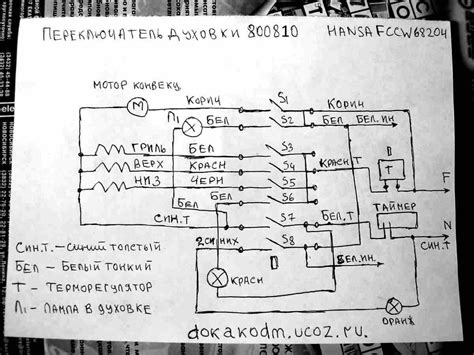 ПЕРЕКЛЮЧАТЕЛЬ ДУХОВКИ 800810 HANSA FCCW68204
МОТОР КОНВЕКЦ.
М КОРИЧ S1 КОРИЧ
Л1 БЕЛ S2 БЕЛ БЕЛ.ИН.
ГРИЛЬ БЕЛ S3
ВЕРХ КРАСН S4 КРАСН Т Т F
НИЗ ЧЕРН S5
БЕЛ БЕЛ S6 ТАЙМЕР
СИН.Т S7 БЕЛ.Т N
2 СИНИХ S8 СИН.Т
БЕЛ.ИН.
КРАСН
ОРАНЖ
СИН.Т.-СИНИЙ ТОЛСТЫЙ
БЕЛ - БЕЛЫЙ ТОНКИЙ
Т - ТЕРМОРЕГУЛЯТОР
Л1 - ЛАМПА В ДУХОВКЕ
dokakodm.ucoz.ru.